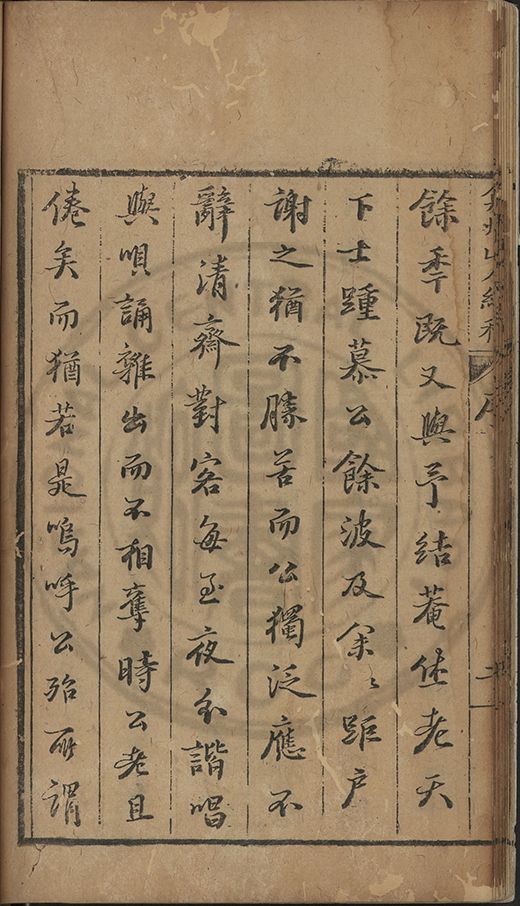 餘季既又與予結菴佳老天
下士踵慕公餘波及余〻距户
謝之猶不勝苦而公獨泛應不
辭清齋對客每至夜分諧唱
與唄誦雜出而不相奪時公老且
倦矣而猶若是嗚呼公殆所謂
弇州山人續稿
序